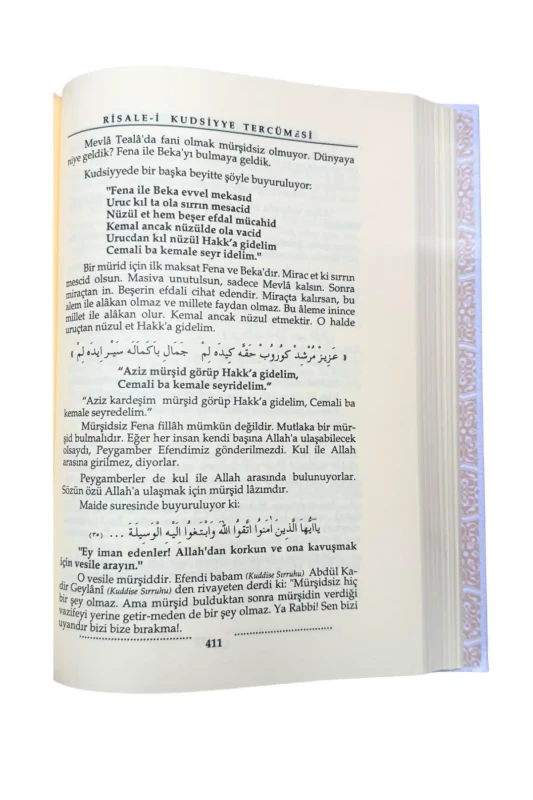 RİSALE-İ KUDSİYYE TERCÜMESİ
Mevlâ Tealâ'da fani olmak mürşidsiz olmuyor. Dünyaya
niye geldik? Fena ile Beka'yı bulmaya geldik.
Kudsiyyede bir başka beyitte şöyle buyuruluyor:
"Fena ile Beka evvel mekasıd
Uruc kıl ta ola sırrın mesacid
Nüzül et hem beşer efdal mücahid
Kemal ancak nüzülde ola vacid
Urucdan kıl nüzül Hakk'a gidelim
Cemali ba kemale seyr idelim."
Bir mürid için ilk maksat Fena ve Beka'dır. Mirac et ki sırrın
mescid olsun. Masiva unutulsun, sadece Mevlâ kalsın. Sonra
miraçtan in. Beşerin efdali cihat edendir. Miraçta kalırsan, bu
alem ile alâkan olmaz ve millete faydan olmaz. Bu âleme inince
millet ile alâkan olur. Kemal ancak nüzul etmektir. O halde
uruçtan nüzul et Hakk'a gidelim.
« عَزِيزْ مُرْشِدْ كُورُوبْ حَقَّه كِيدَه لِمْ جَمَالِ بَاكَمَالَه سَيْرِ ايدَه لِمْ »
“Aziz mürşid görüp Hakk'a gidelim,
Cemali ba kemale seyridelim.”
“Aziz kardeşim mürşid görüp Hakk'a gidelim, Cemali ba
kemale seyredelim.”
Mürşidsiz Fena fillâh mümkün değildir. Mutlaka bir mür-
şid bulmalıdır. Eğer her insan kendi başına Allah'a ulaşabilecek
olsaydı, Peygamber Efendimiz gönderilmezdi. Kul ile Allah
arasına girilmez, diyorlar.
Peygamberler de kul ile Allah arasında bulunuyorlar.
Sözün özü Allah'a ulaşmak için mürşid lâzımdır.
Maide suresinde buyuruluyor ki:
يَآاَيُّهَا الَّذِينَ اٰمَنُوا اتَّقُوا اللّٰهَ وَابْتَغُوا اِلَيْهِ الْوَسِيلَةَ ... (٣٥)
"Ey iman edenler! Allah'dan korkun ve ona kavuşmak
için vesile arayın."
O vesile mürşiddir. Efendi babam (Kuddise Sırruhu) Abdül Ka-
dir Geylânî (Kuddise Sırruhu) den rivayeten derdi ki: "Mürşidsiz hiç
bir şey olmaz. Ama mürşid bulduktan sonra mürşidin verdiği
vazifeyi yerine getir-meden de bir şey olmaz. Ya Rabbi! Sen bizi
uyandır bizi bize bırakma!.
411